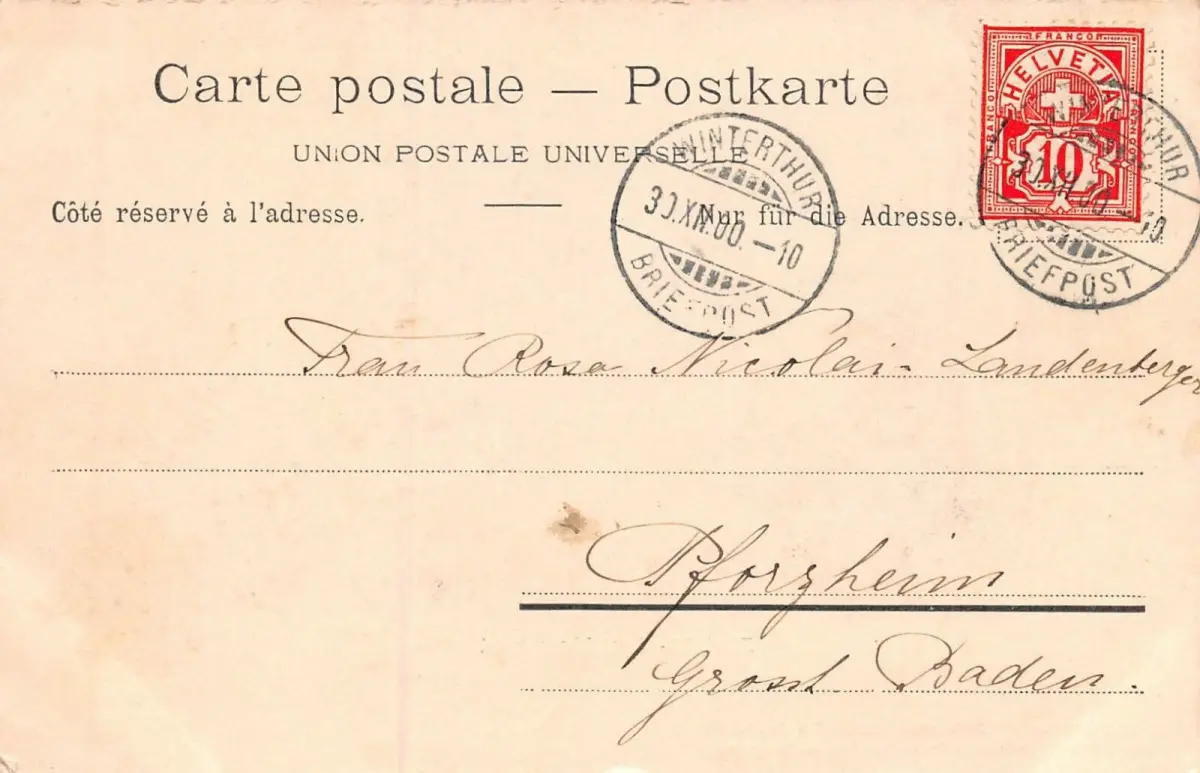 Carte postale — Postkarte
UNION POSTALE UNIVERSELLE
Côté réservé à l'adresse.
Nur für die Adresse.
FRANCO
FRANCO
FRANCO
HELVETIA
10
WINTERTHUR
30.XII.00.—10
BRIEFPOST
WINTERTHUR
30.XII.00.—10
BRIEFPOST
Frau Rosa Nicolai-Landenberger
Pforzheim
Grossh. Baden.